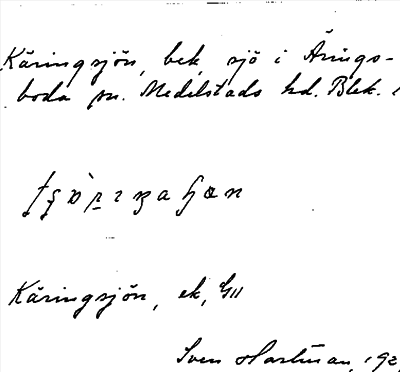 Käringsjön, bek, sjö i Årings-
boda sn. Medelstads hd. Blek.
Käringsjön, ek, G11
Sven Hartman, 192